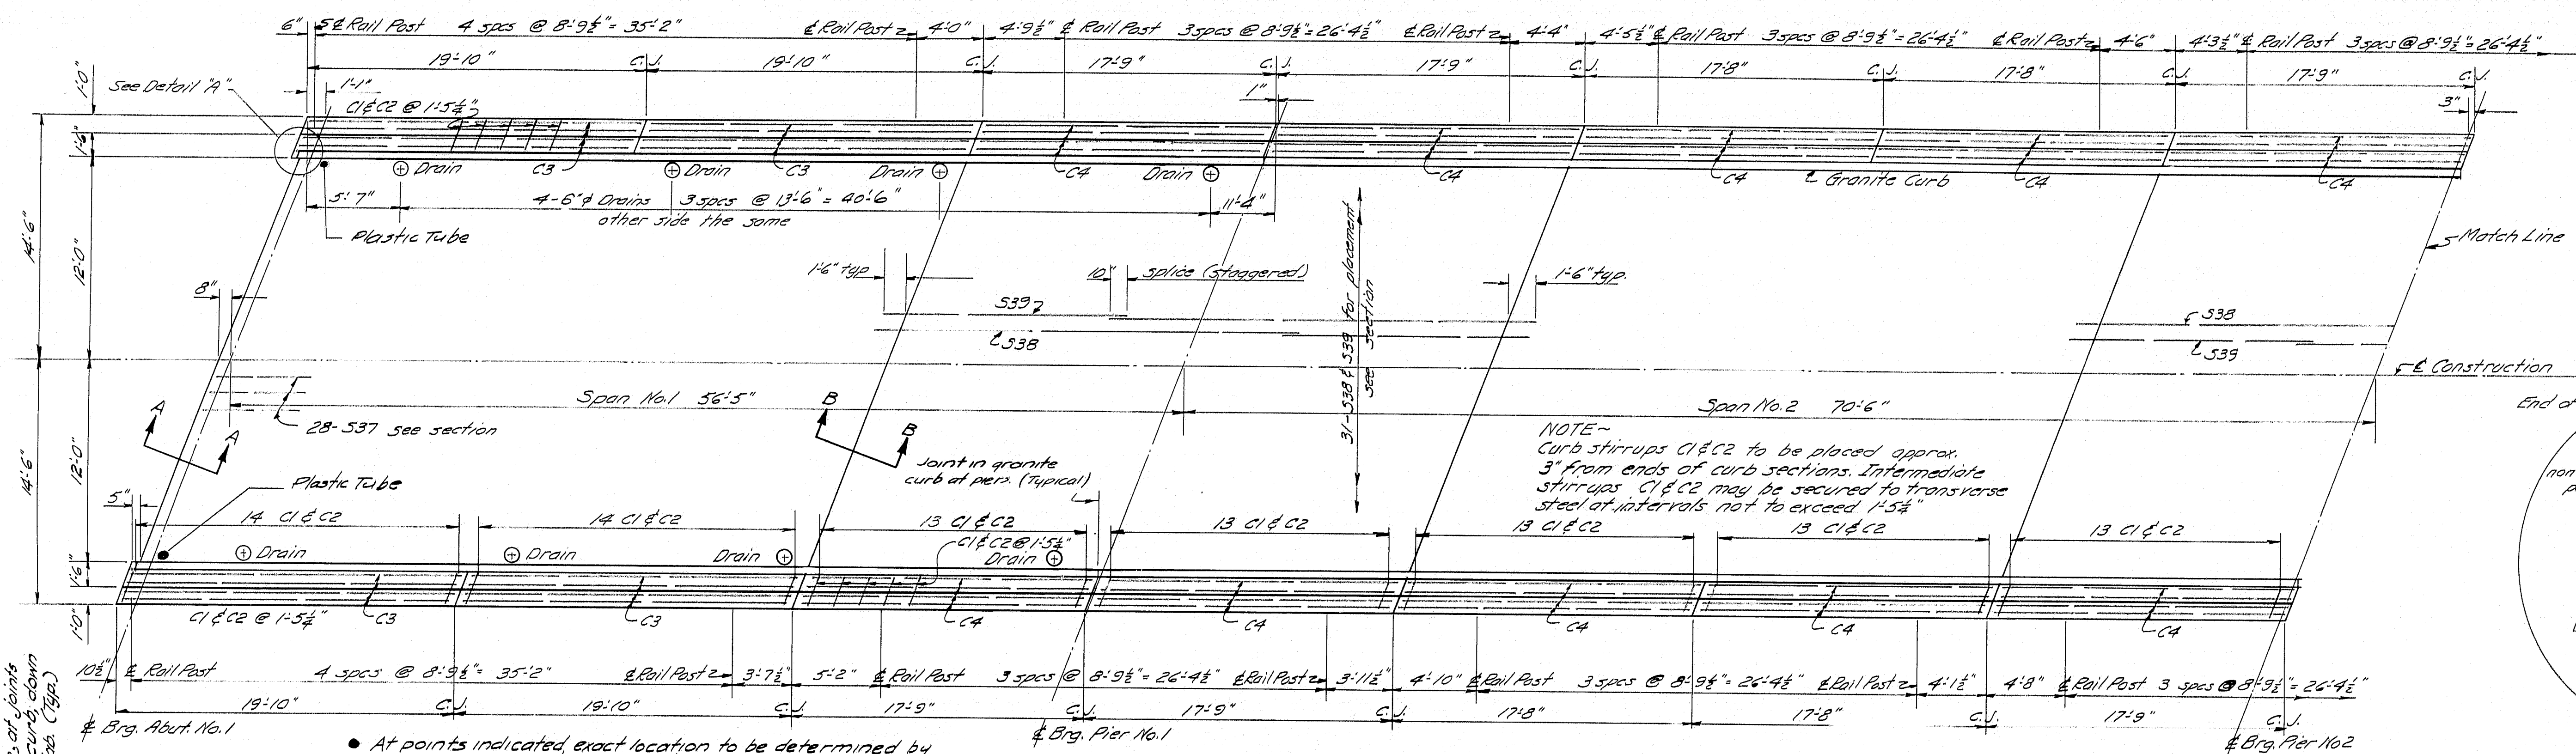 6" ℄ Rail Post 4 spcs @ 8'-9½" = 35'-2" ℄ Rail Post 4'-0" 4'-9½" ℄ Rail Post 3 spcs @ 8'-9½" = 26'-4½" ℄ Rail Post 4'-4" 4'-5½" ℄ Rail Post 3 spcs @ 8'-9½" = 26'-4½" ℄ Rail Post 4'-6" 4'-3½" ℄ Rail Post 3 spcs @ 8'-9½" = 26'-4½"
19'-10" C.J. 19'-10" C.J. 17'-9" C.J. 17'-9" C.J. 17'-8" C.J. 17'-8" C.J. 17'-9" C.J.
1'-0" See Detail "A" 1'-1" 1" 3"
C1 & C2 @ 1'-5¼"
1'-6"
Drain C3 Drain C3 Drain C4 Drain C4 C4 Granite Curb C4 C4
5'-7" 4-6"⌀ Drains 3 spcs @ 13'-6" = 40'-6" 11'-4"
other side the same
Plastic Tube
Match Line
14'-6" 12'-0"
1'-6" typ. 10" splice (staggered) 1'-6" typ.
8"
S39 S38
S38 S39
31-S38 & S39 for placement
see section
℄ Construction
Span No.1 56'-5" Span No.2 70'-6"
End of
A A B B
28-S37 see section
NOTE~
Curb stirrups C1 & C2 to be placed approx.
3" from ends of curb sections. Intermediate
stirrups C1 & C2 may be secured to transverse
steel at intervals not to exceed 1'-5¼"
Joint in granite
curb at piers. (Typical)
14'-6" 12'-0"
Plastic Tube
5"
14 C1 & C2 14 C1 & C2 13 C1 & C2 13 C1 & C2 13 C1 & C2 13 C1 & C2 13 C1 & C2
C1 & C2 @ 1'-5¼"
Drain Drain Drain Drain
1'-6"
1'-0" C1 & C2 @ 1'-5¼" C3 C3 C4 C4 C4 C4 C4
10½" ℄ Rail Post 4 spcs @ 8'-9½" = 35'-2" ℄ Rail Post 3'-7½" 5'-2" ℄ Rail Post 3 spcs @ 8'-9½" = 26'-4½" ℄ Rail Post 3'-11½" 4'-10" ℄ Rail Post 3 spcs @ 8'-9½" = 26'-4½" ℄ Rail Post 4'-1½" 4'-8" ℄ Rail Post 3 spcs @ 8'-9½" = 26'-4½"
19'-10" C.J. 19'-10" C.J. 17'-9" C.J. 17'-9" C.J. 17'-8" 17'-8" C.J. 17'-9" C.J.
℄ Brg. Abut. No.1 ℄ Brg. Pier No.1 ℄ Brg. Pier No2
at joints
curb, down
(Typ.)
● At points indicated, exact location to be determined by